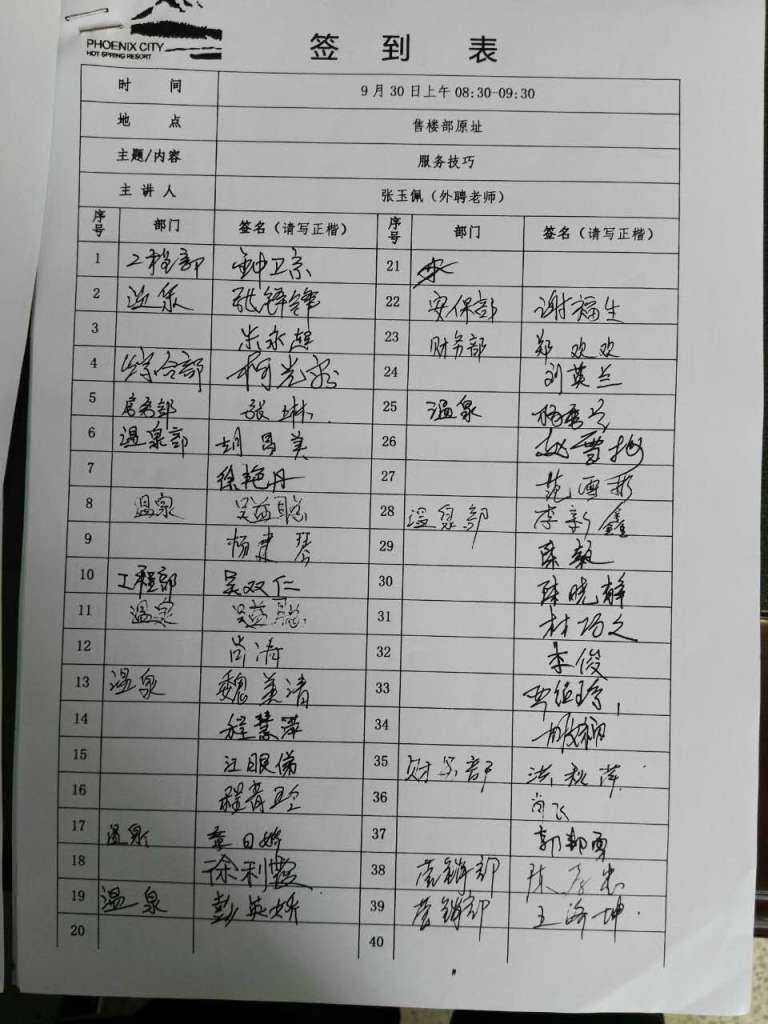 PHOENIX CITY
HOT SPRING RESORT
签 到 表
时 间 9月30日上午08:30-09:30
地 点 售楼部原址
主题/内容 服务技巧
主讲人 张玉佩（外聘老师）
序号 部门 签名（请写正楷） 序号 部门 签名（请写正楷）
1 工程部 钟卫京 21
2 温泉 张锌锋 22 安保部 谢福生
3 朱永超 23 财务部 郑欢欢
4 综合部 柯光 24 刘英兰
5 房务部 张琳 25 温泉 杨
6 温泉部 胡昌美 26 赵雪梅
7 徐艳丹 27 范雪彬
8 温泉 吴益聪 28 温泉部 李新鑫
9 杨建琴 29 陈敏
10 工程部 吴双仁 30 陈晓静
11 温泉 吴益聪 31 林巧文
12 尚涛 32 李俊
13 温泉 魏美清 33
14 程慧萍 34
15 江眼俤 35 财务部 洪秋萍
16 程青 36 尚飞
17 温泉 章日娇 37 郭邦勇
18 徐利 38 营销部 陈忠
19 温泉 彭英娇 39 营销部 王海坤
20 40